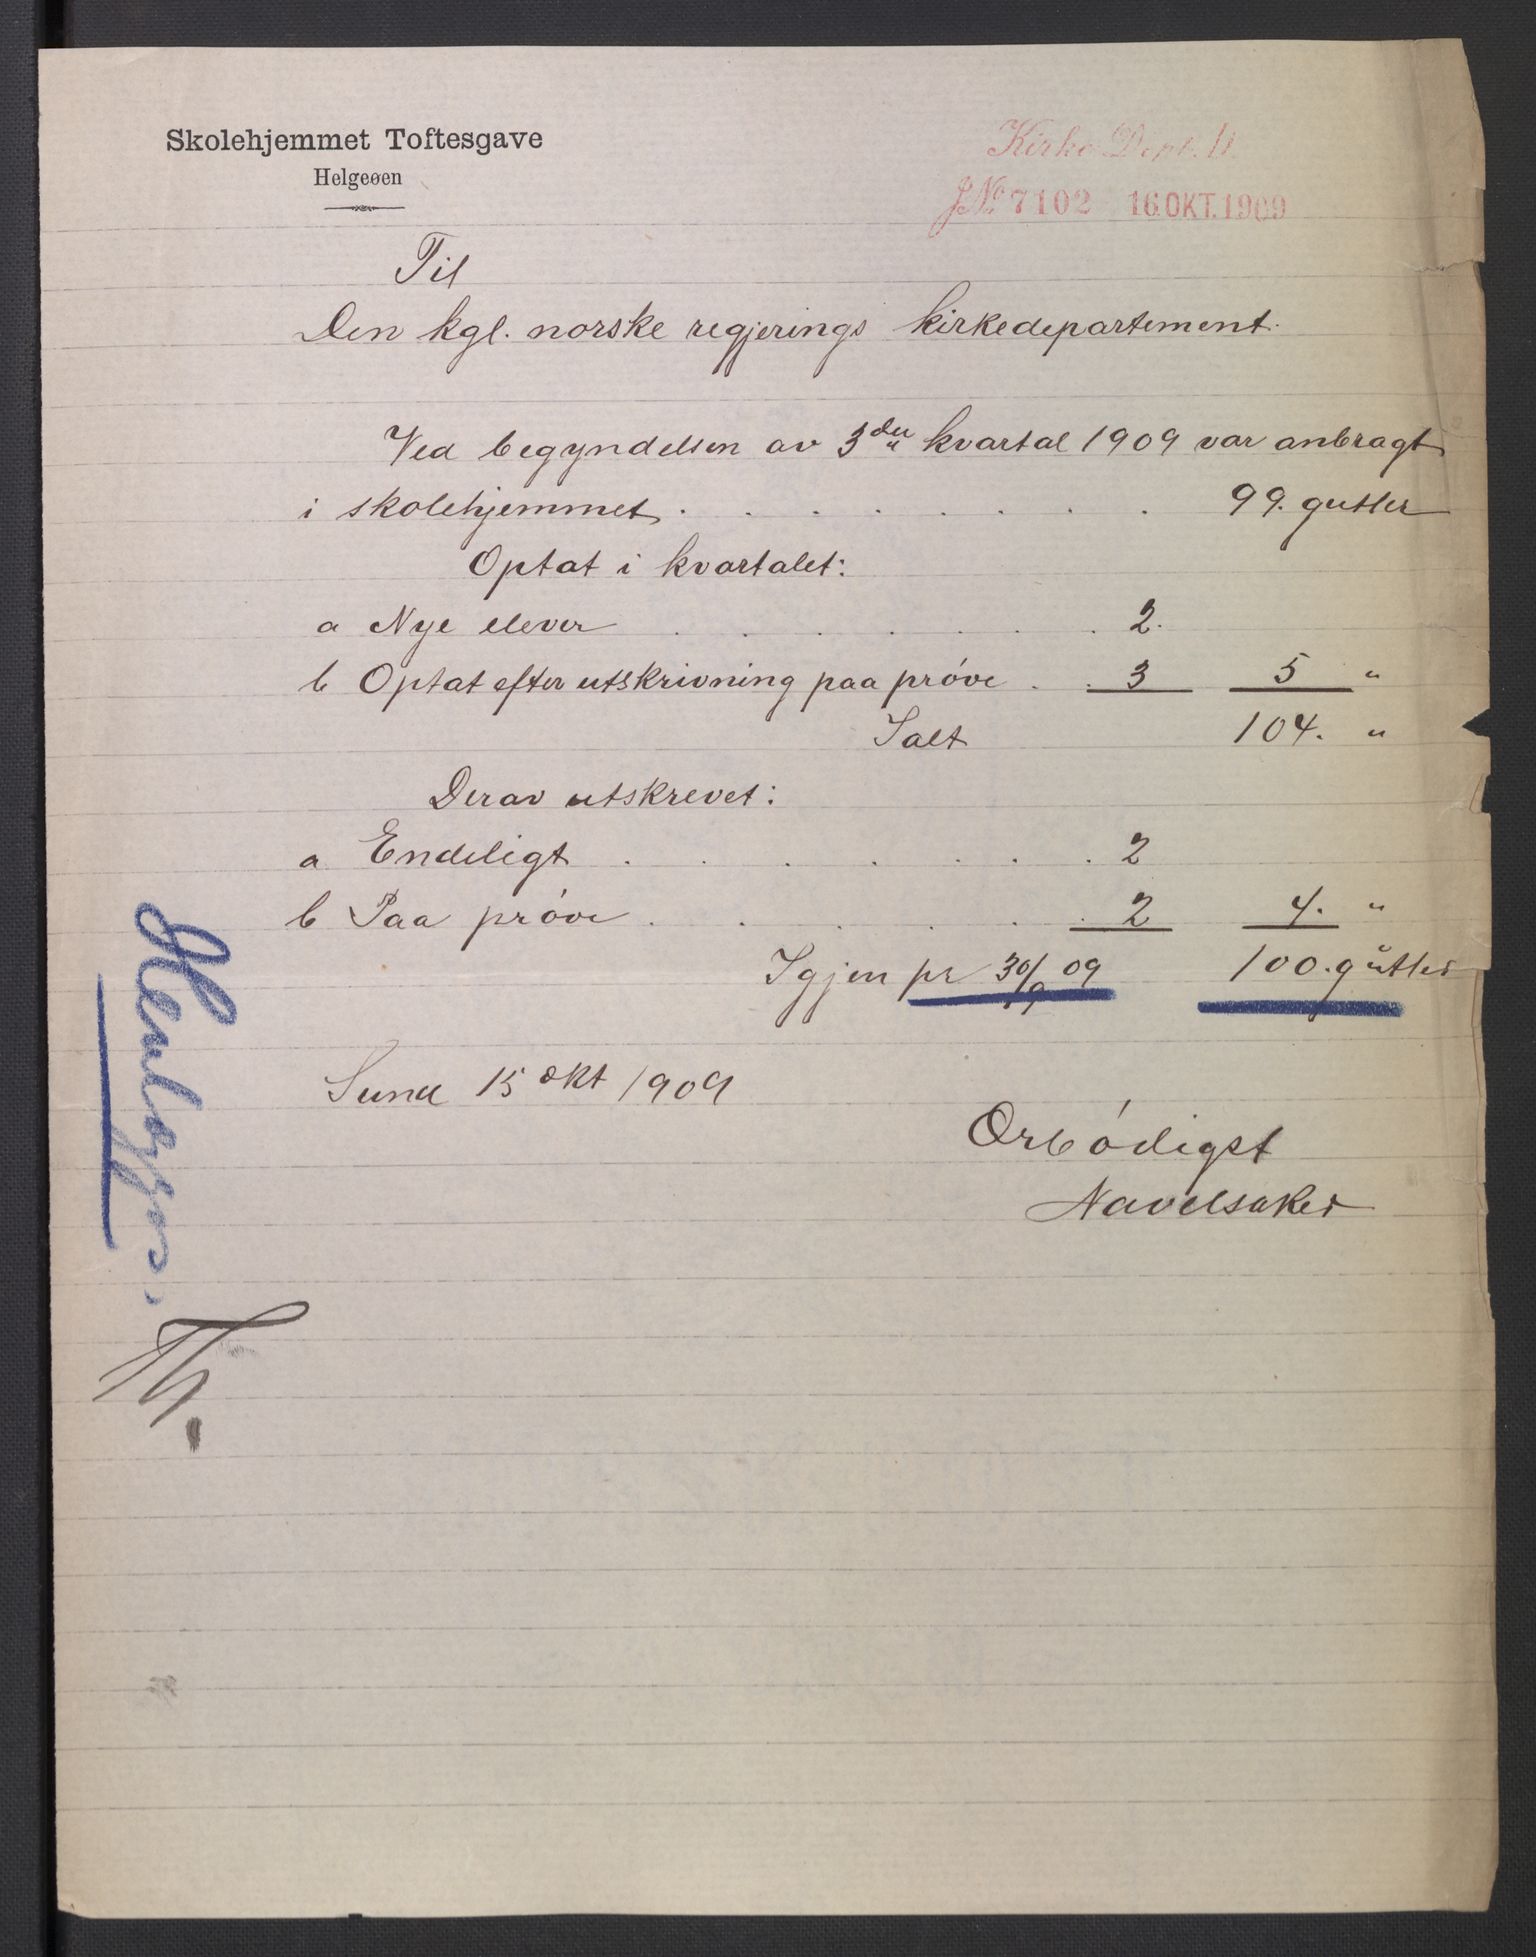 Skolehjemmet Toftesgave
Helgeøen
Kirke Dept. B.
JNo 7102 16.OKT.1909
Til
Den kgl. norske regjerings kirkedepartement.
Ved begyndelsen av 3die kvartal 1909 var anbragt
i skolehjemmet . . . . . . . . 99. gutter
Optat i kvartalet:
a Nye elever . . . . . . . 2.
b Optat efter utskrivning paa próve . . 3 5 "
Ialt 104. "
Derav utskrevet:
a Endeligt . . . . . . . 2
b Paa próve . . . . . . 2 4. "
Igjen pr 30/9 09 100. gutter
Sund 15 okt 1909
Ærbódigst
Navelsaker
Henlægges.
Th.